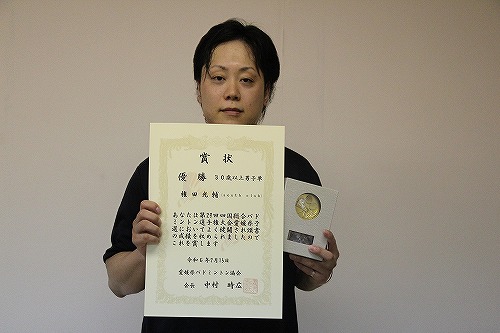 賞状
優勝 30歳以上男子単
権田光輔(south club)
あなたは第29回四国総合バド
ミントン選手権大会愛媛県予
選においてよく健闘され頭書
の成績を収められましたので
これを賞します
令和6年7月15日
愛媛県バドミントン協会
会長 中村 時広